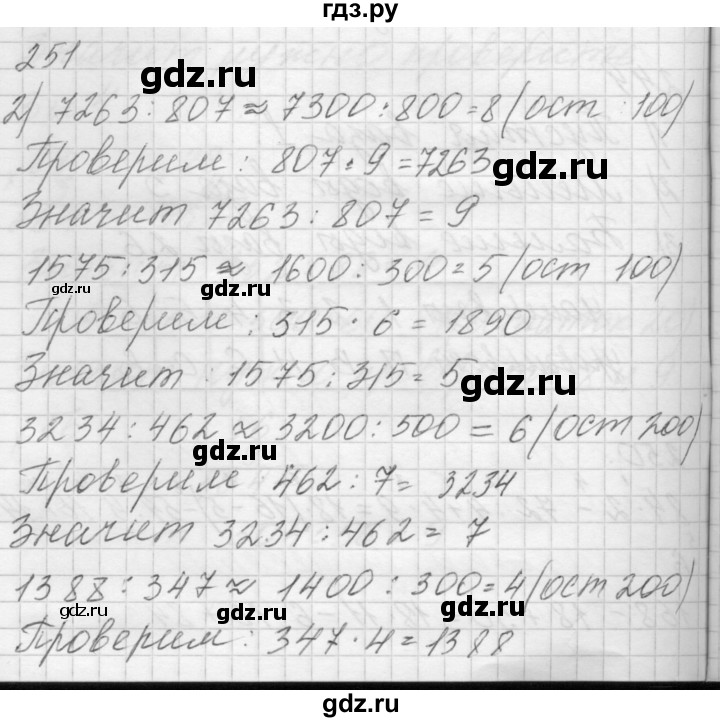 гдз.ру
251
gdz.ru
2) 7263 : 807 ≈ 7300 : 800 = 8 (ост 100)
Проверим : 807 · 9 = 7263
gdz.ru
Значит 7263 : 807 = 9
1575 : 315 ≈ 1600 : 300 = 5 (ост 100)
gdz.ru
gdz.ru
Проверим : 315 · 6 = 1890
Значит : 1575 : 315 = 5
gdz.ru
3234 : 462 ≈ 3200 : 500 = 6 (ост 200)
gdz.ru
Проверим 462 : 7 = 3234
Значит 3234 : 462 = 7
1388 : 347 ≈ 1400 : 300 = 4 (ост 200)
gdz.ru
gdz.ru
Проверим : 347 · 4 = 1388
gdz.ru